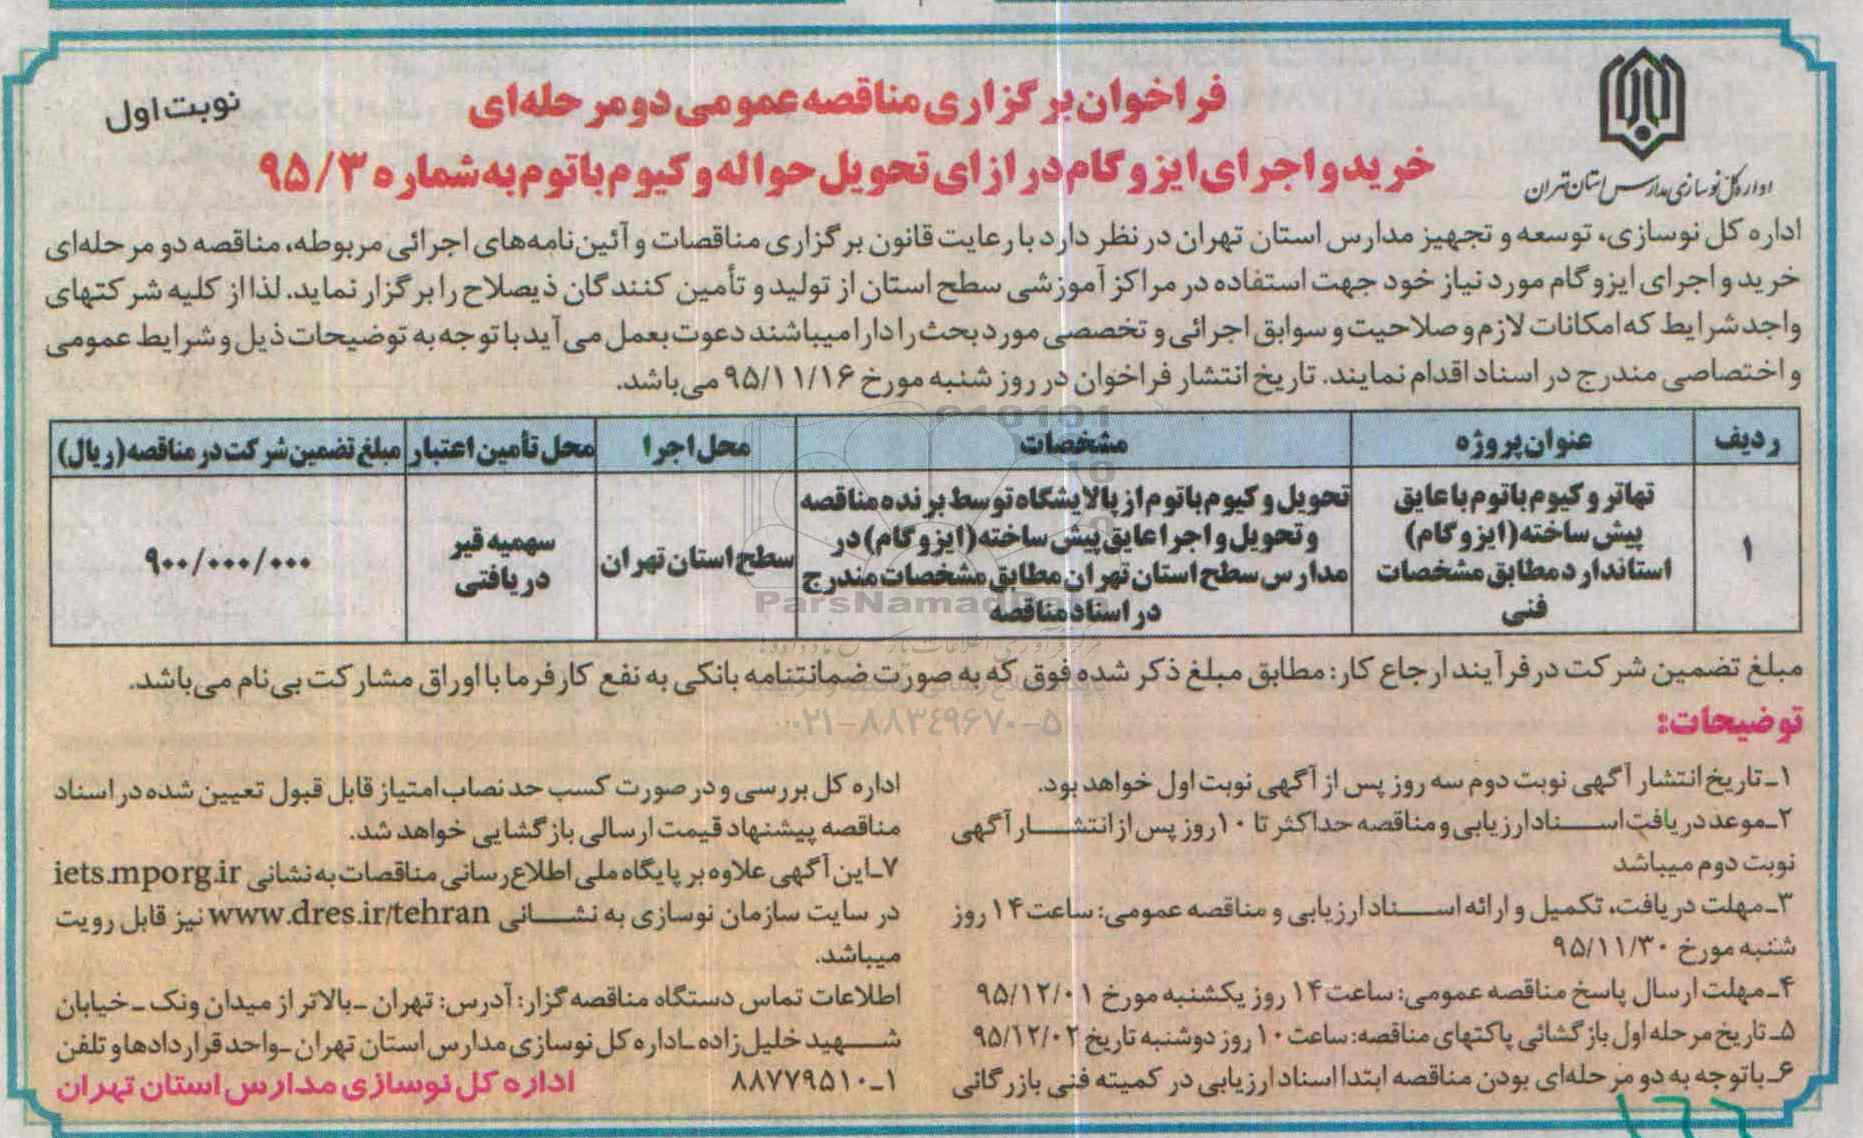 اداره کل نوسازی مدارس استان تهران
نوبت اول
فراخوان برگزاری مناقصه عمومی دو مرحله‌ای
خرید و اجرای ایزوگام در ازای تحویل حواله وکیوم باتوم به شماره ۹۵/۳
اداره کل نوسازی، توسعه و تجهیز مدارس استان تهران در نظر دارد با رعایت قانون برگزاری مناقصات و آئین‌نامه‌های اجرائی مربوطه، مناقصه دو مرحله‌ای
خرید و اجرای ایزوگام مورد نیاز خود جهت استفاده در مراکز آموزشی سطح استان از تولید و تأمین کنندگان ذیصلاح را برگزار نماید. لذا از کلیه شرکتهای
واجد شرایط که امکانات لازم و صلاحیت و سوابق اجرائی و تخصصی مورد بحث را دارا میباشند دعوت بعمل می‌آید با توجه به توضیحات ذیل و شرایط عمومی
و اختصاصی مندرج در اسناد اقدام نمایند. تاریخ انتشار فراخوان در روز شنبه مورخ ۹۵/۱۱/۱۶ می‌باشد.
ردیف عنوان پروژه مشخصات محل اجرا محل تأمین اعتبار مبلغ تضمین شرکت در مناقصه (ریال)
۱
تهاتر وکیوم باتوم با عایق
پیش ساخته (ایزوگام)
استاندارد مطابق مشخصات
فنی
تحویل وکیوم باتوم از پالایشگاه توسط برنده مناقصه
و تحویل و اجرا عایق پیش ساخته (ایزوگام) در
مدارس سطح استان تهران مطابق مشخصات مندرج
در اسناد مناقصه
سطح استان تهران
سهمیه قیر
دریافتی
۹۰۰/۰۰۰/۰۰۰
ParsNamadData
مبلغ تضمین شرکت در فرآیند ارجاع کار: مطابق مبلغ ذکر شده فوق که به صورت ضمانتنامه بانکی به نفع کارفرما با اوراق مشارکت بی‌نام می‌باشد.
۰۲۱-۸۸۳۴۹۶۷۰-۵
توضیحات:
۱ـ تاریخ انتشار آگهی نوبت دوم سه روز پس از آگهی نوبت اول خواهد بود.
۲ـ موعد دریافت اسناد ارزیابی و مناقصه حداکثر تا ۱۰ روز پس از انتشار آگهی
نوبت دوم میباشد
۳ـ مهلت دریافت، تکمیل و ارائه اسناد ارزیابی و مناقصه عمومی: ساعت ۱۴ روز
شنبه مورخ ۹۵/۱۱/۳۰
۴ـ مهلت ارسال پاسخ مناقصه عمومی: ساعت ۱۴ روز یکشنبه مورخ ۹۵/۱۲/۰۱
۵ـ تاریخ مرحله اول بازگشائی پاکتهای مناقصه: ساعت ۱۰ روز دوشنبه تاریخ ۹۵/۱۲/۰۲
۶ـ با توجه به دو مرحله‌ای بودن مناقصه ابتدا اسناد ارزیابی در کمیته فنی بازرگانی
اداره کل بررسی و در صورت کسب حد نصاب امتیاز قابل قبول تعیین شده در اسناد
مناقصه پیشنهاد قیمت ارسالی بازگشایی خواهد شد.
۷ـ این آگهی علاوه بر پایگاه ملی اطلاع رسانی مناقصات به نشانی iets.mporg.ir
در سایت سازمان نوسازی به نشانی www.dres.ir/tehran نیز قابل رویت
میباشد.
اطلاعات تماس دستگاه مناقصه گزار: آدرس: تهران ـ بالاتر از میدان ونک ـ خیابان
شهید خلیل زاده ـ اداره کل نوسازی مدارس استان تهران ـ واحد قراردادها و تلفن
۱ـ۸۸۷۷۹۵۱۰
اداره کل نوسازی مدارس استان تهران